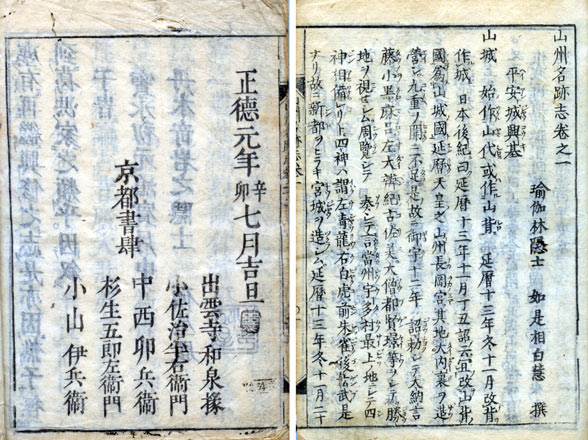 山州名跡志卷之一
瑜伽林隱士 如是相白慧 撰
平安城興基
山城 始作山代或作山背 延曆十三年冬十一月改背
作城 日本後紀曰延曆十三年十一月丁丑詔云宜改山背
國爲山城國延曆 天皇之山州長岡宮其地大内裏ヲ造
營シ九重ヲ開ニ不足是故ニ御宇十二年 詔勅シテ大納言
藤小黒麻呂左大 紀古佐美大僧都賢璟等シテ勝
地ヲ視セシム周覽シテ 奏シテ言當州宇多村最上ノ地シテ四
神相備レリト四神ハ謂左青龍右白虎前朱雀後玄武是
ナリ故ニ新都ヲヒラキ宮城ヲ造 シム延曆十三年冬十一月二十
正德元年辛卯七月吉旦
出雲寺和泉掾
小佐治半右衛門
京都書肆
中西卯兵衛
杉生五郎左衛門
小山伊兵衛